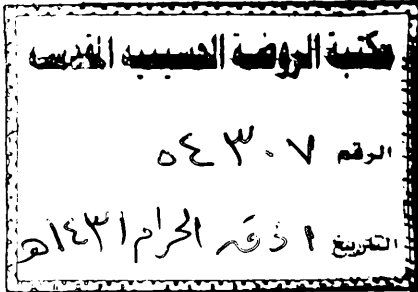 مكتبة الروضة الحسينية المقدسة
الرقم ٥٤٣٠٧
التاريخ ١ ذي الحرام ١٤٣١هـ